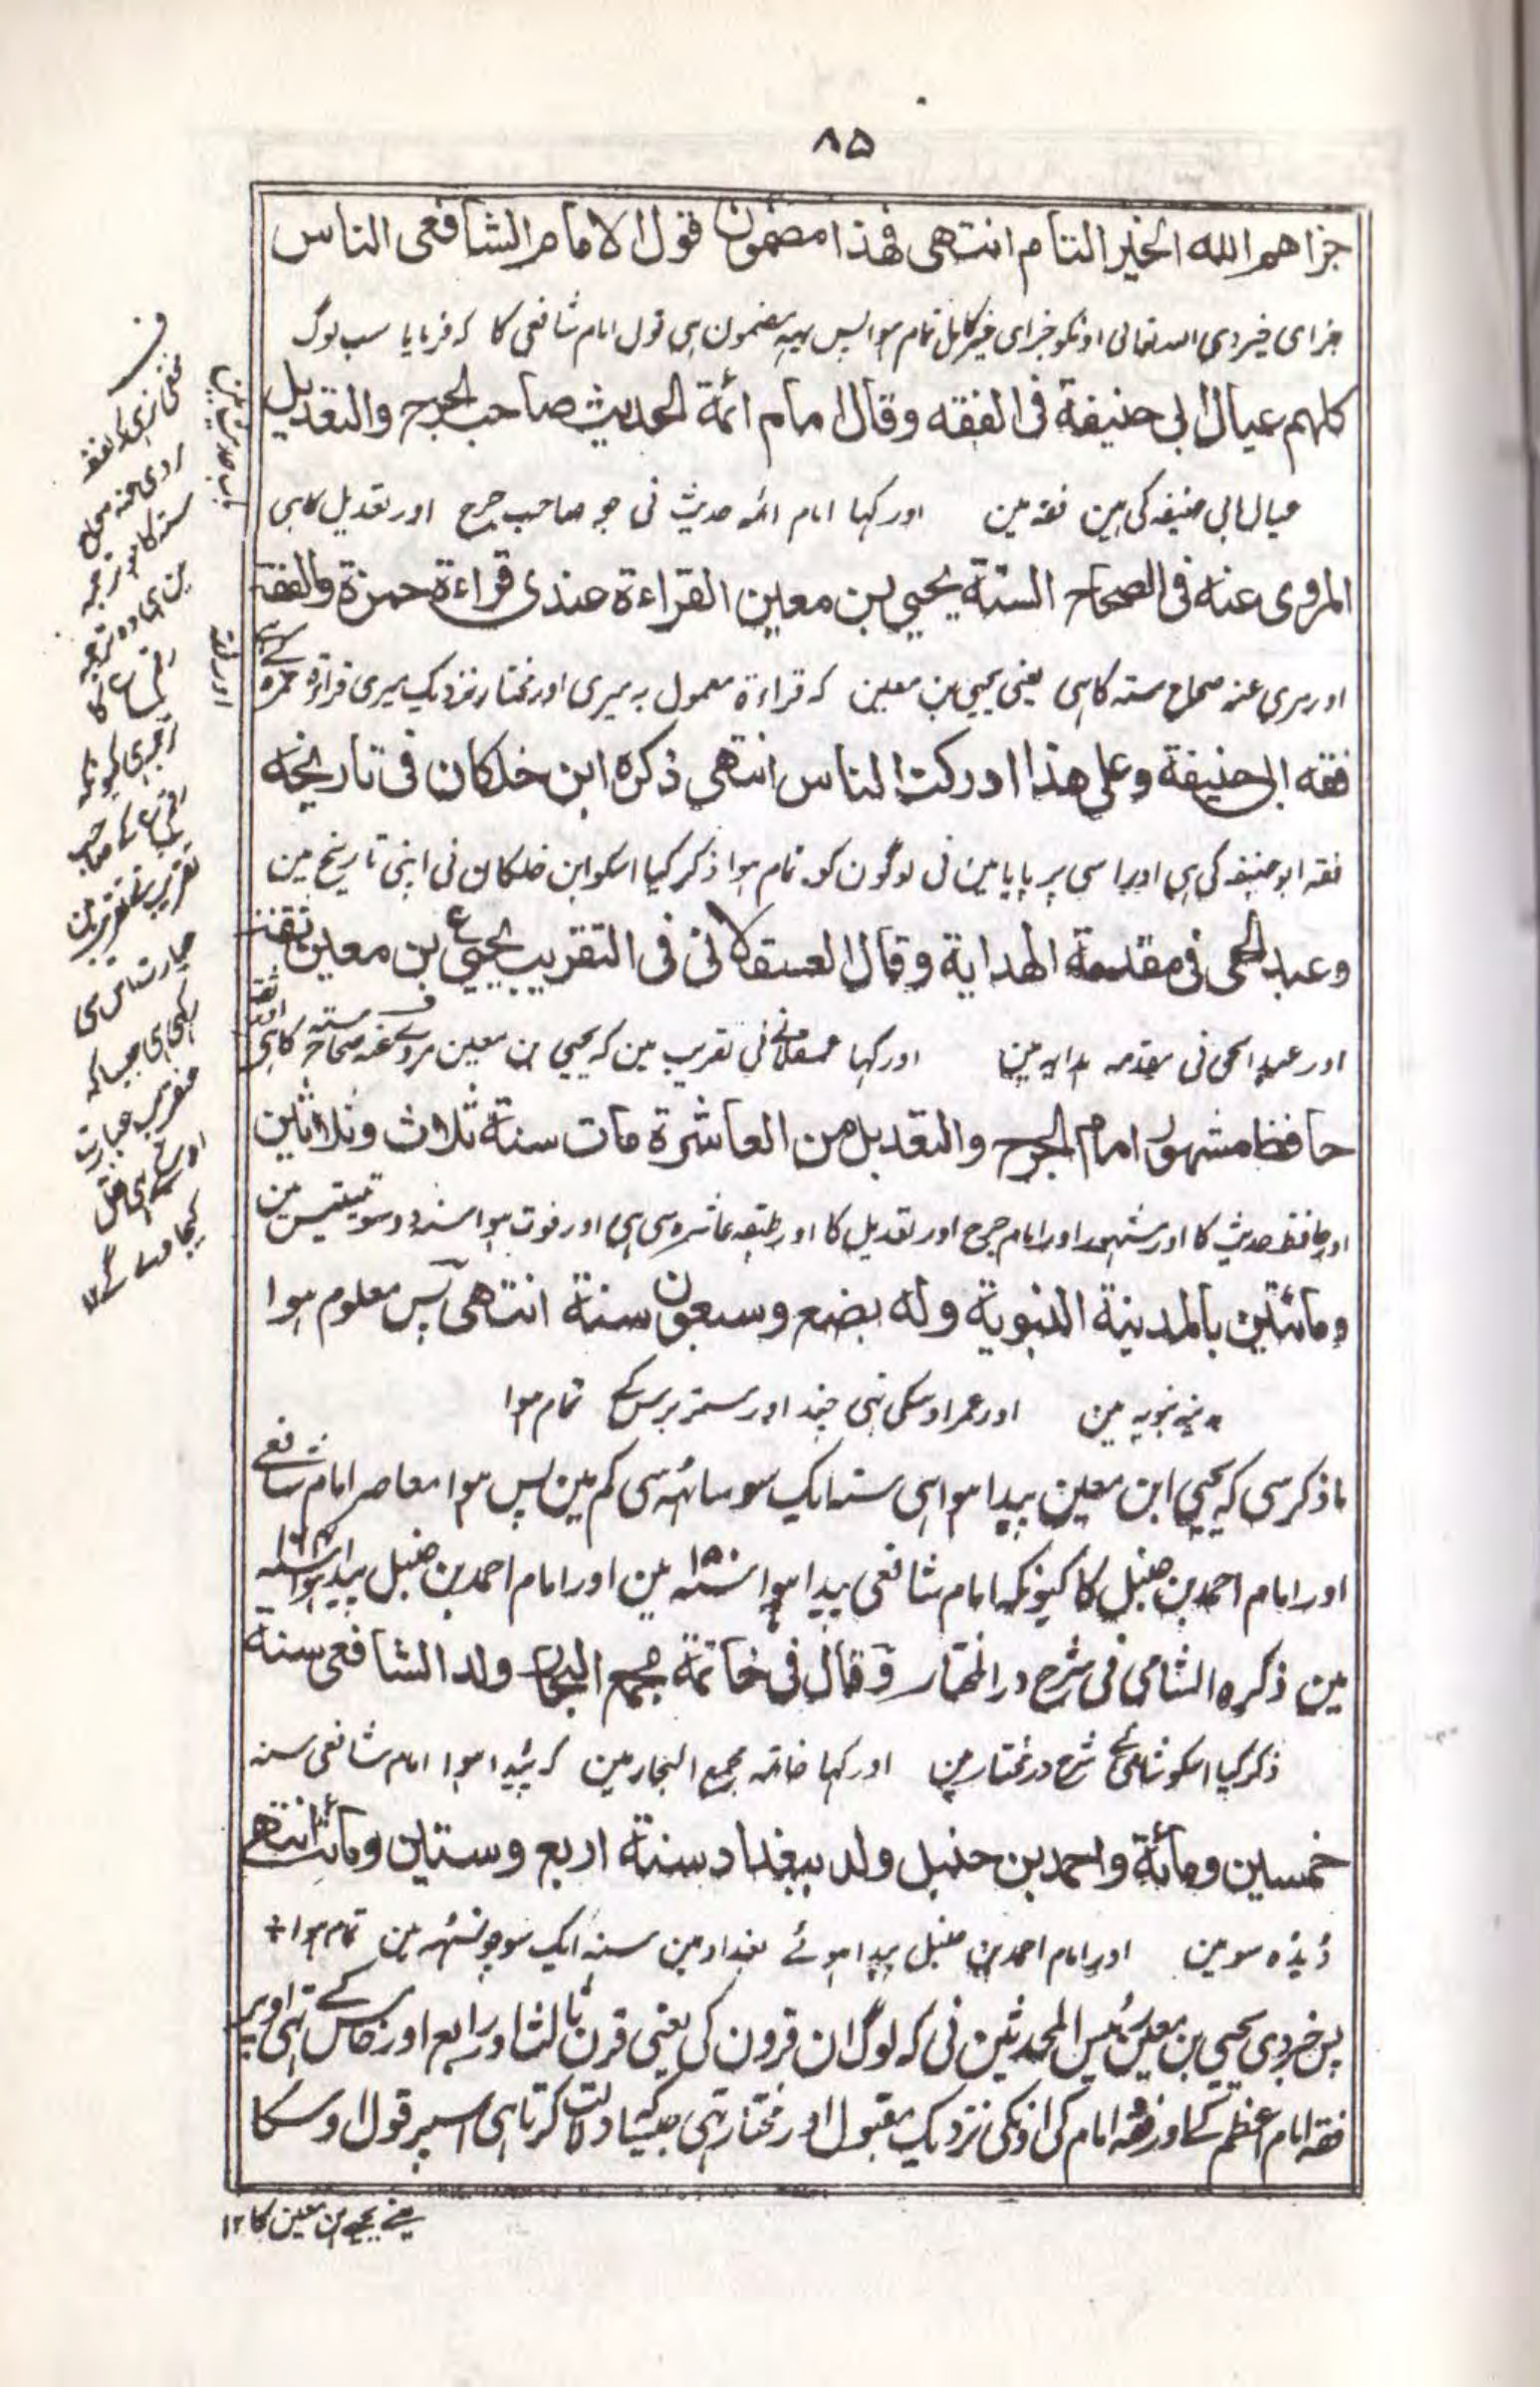 ۸۵
جزاهم الله الخير التام انتهى فهذا مضمون قول الامام الشافعى الناس
جزای خیر دی اللہ تعالی اونکو جزای خیر کامل تمام ہوا پس یہہ مضمون ہی قول امام شافعی کا کہ فرمایا سب لوگ
كلهم عيال ابي حنيفة فى الفقه وقال امام ائمة الحديث صاحب الجرح والتعديل
عیال ابی حنیفہ کی ہین فقہ مین اور کہا امام ائمہ حدیث نی جو صاحب جرح اور تعدیل کا ہی
المروى عنه فى الصحاح الستة يحيى بن معين القراءة عندى قراءة حمزة والفقه
اور مروی عنہ صحاح ستہ کا ہی یعنی یحیی بن معین کہ قراءة معمول بہ میری اور مختار نزدیک میری قراءة حمزہ کے ہی
فقه ابى حنيفة وعلى هذا ادركت الناس انتهى ذكره ابن خلكان فى تاريخه
فقہ ابو حنیفہ کی ہی اور اسی پر پایا مین نی لوگون کو تمام ہوا ذکر کیا اسکو ابن خلکان نی اپنی تاریخ مین
وعبد الحى فى مقدمة الهداية وقال العسقلانى فى التقريب يحيى بن معين ثقة
اور عبد الحی نی مقدمہ ہدایہ مین اور کہا عسقلانی نی تقریب مین کہ یحیی بن معین مروی عنہ صحاح ستہ کا ہی ثقہ
حافظ مشهور امام الجرح والتعديل من العاشرة مات سنة ثلاث وثلاثين
اور حافظ حدیث کا اور مشہور اور امام جرح اور تعدیل کا اور طبقہ عاشرہ سی ہی اور فوت ہوا سنہ دو سو تینتیس مین
ومائتين بالمدينة النبوية وله بضع وسبعون سنة انتهى پس معلوم ہوا
مدینہ نبویہ مین اور عمر اوسکی تہی چند اور ستر برس کے تمام ہوا
ما ذکر سی کہ یحیی ابن معین پیدا ہوا ہی سنہ ایک سو ساٹہہ سی کم مین پس ہوا معاصر امام شافعی
اور امام احمد بن حنبل کا کیونکہ امام شافعی پیدا ہوا سنہ ۱۵۰ مین اور امام احمد بن حنبل پیدا ہوا سنہ ۱۶۴
مین ذكره الشامى فى شرح در المختار وقال فى خاتمة مجمع البحار ولد الشافعى سنة
ذکر کیا اسکو شامی نے شرح در مختار مین اور کہا خاتمہ مجمع البحار مین کہ پیدا ہوا امام شافعی سنہ
خمسين ومائة واحمد بن حنبل ولد ببغداد سنة اربع وستين ومائة انتهى
ڈیڈہ سو مین اور امام احمد بن حنبل پیدا ہوئے بغداد مین سنہ ایک سو چونسٹہہ مین تمام ہوا
پس خبر دی یحیی بن معین رئیس المحدثین نی کہ لوگ ان قرون کی یعنی قرن ثالث اور رابع اور خامس کے تہی اوپر
فقہ امام اعظم کے اور فقہ امام کی اونکی نزدیک مقبول اور مختار تہی جیسا دلالت کرتا ہی اسپر قول اوسکا
یعنے یحیے بن معین کا ۱۲